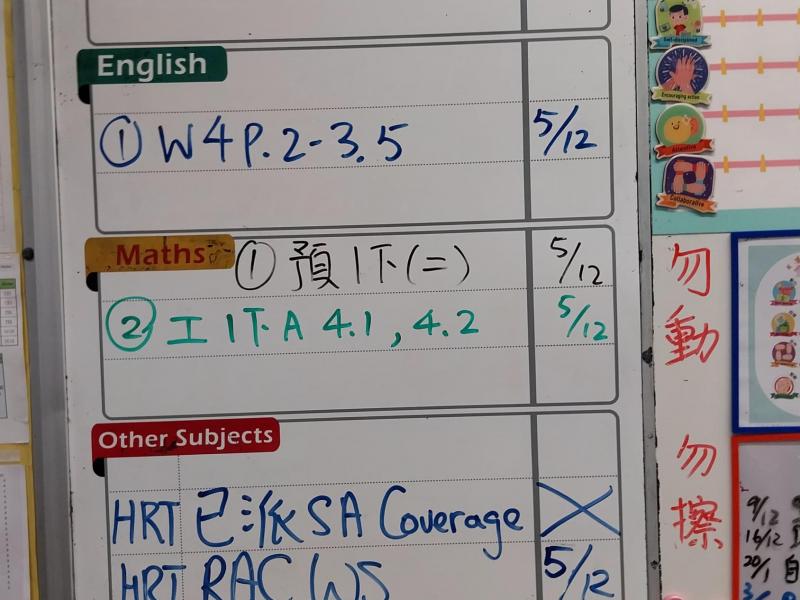 English
① W4 P.2-3.5 5/12
Maths ① 預1下(二) 5/12
② 工1下A 4.1, 4.2 5/12
Other Subjects
HRT 已派 SA Coverage
HRT RAC WS 5/12
Self-disciplined
Encouraging action
Attentive
Collaborative
勿動
勿擦
9/12
16/12
20/1 自